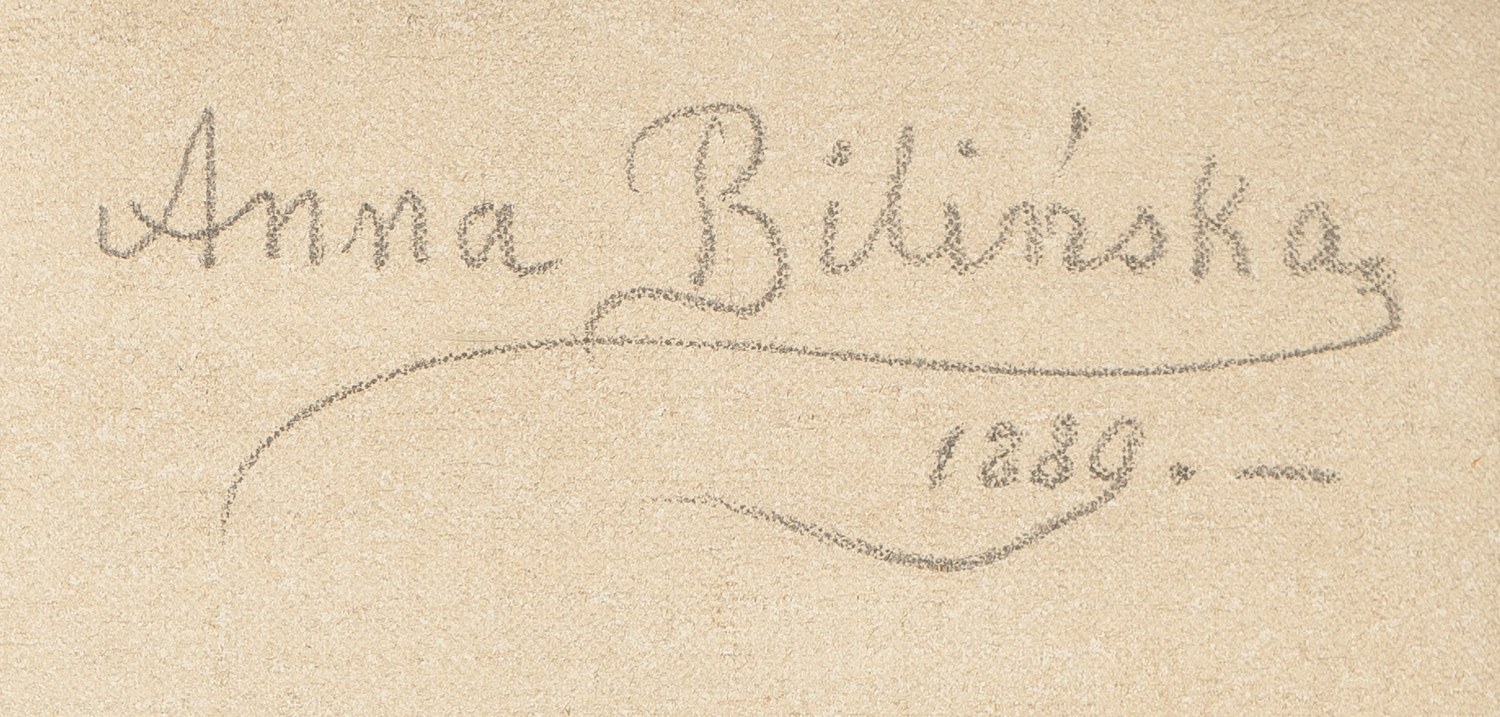 Anna Bilińska
1889. —